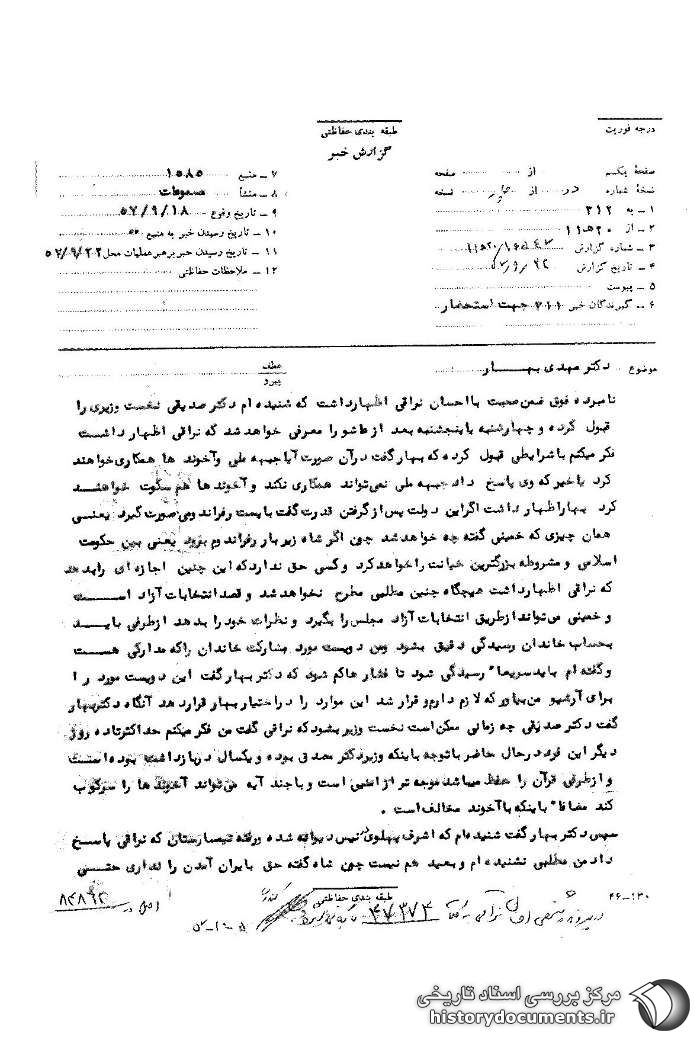 درجه فوریت
طبقه بندی حفاظتی
گزارش خبر
صفحهٔ یکم از صفحه
نسخهٔ شماره در از چهار نسخه
۱ ـ به ۳۱۲
۲ ـ از ۲۰ ه ۱۱
۳ ـ شماره گزارش
۴ ـ تاریخ گزارش
۵ ـ پیوست
۶ ـ گیرندگان خبر ۳۱۱ جهت استحضار
۷ ـ منبع ۱۵۸۵
۸ ـ منشأ مسموعات
۹ ـ تاریخ وقوع ۵۷/۹/۱۸
۱۰ ـ تاریخ رسیدن خبر به منبع
۱۱ ـ تاریخ رسیدن خبر برهبر عملیات محل ۵۷/۹/۲۲
۱۲ ـ ملاحظات حفاظتی
موضوع دکتر مهدی بهار
عطف
پیرو
نامبرده فوق ضمن صحبت با احسان نراقی اظهار داشت که شنیده ام دکتر صدیقی نخست وزیری را
قبول کرده و چهارشنبه یا پنجشنبه بعد از عاشورا معرفی خواهد شد که نراقی اظهار داشت
فکر میکنم با شرایطی قبول کرده که بهار گفت در آن صورت آیا جبهه ملی و آخوند ها همکاری خواهند
کرد یا خیر که وی پاسخ داد جبهه ملی نمی تواند همکاری نکند و آخوند ها هم سکوت خواهند
کرد بهار اظهار داشت اگر این دولت پس از گرفتن قدرت گفت بایست رفراندومی صورت گیرد یعنی
همان چیزی که خمینی گفته چه خواهد شد چون اگر شاه زیر بار رفراندوم برود یعنی بین حکومت
اسلامی و مشروطه بزرگترین خیانت را خواهد کرد و کسی حق ندارد که این چنین اجازه ای را بدهد
که نراقی اظهار داشت هیچگاه چنین مطلبی مطرح نخواهد شد و قصد انتخابات آزاد است
و خمینی می تواند از طریق انتخابات آزاد مجلس را بگیرد و نظرات خود را بدهد از طرفی باید
بحساب خاندان رسیدگی دقیق بشود ومن دویست مورد مشارکت خاندان را که مدارکی هست
و گفته ام باید سریعا" رسیدگی شود تا فشار ها کم شود که دکتر بهار گفت این دویست مورد را
برای آرشیو من بیاور که لازم دارم و قرار شد این موارد را در اختیار بهار قرار دهد آنگاه دکتر بهار
گفت دکتر صدیقی چه زمانی ممکن است نخست وزیر بشود که نراقی گفت من فکر میکنم حداکثر تا ده روز
دیگر این فرد در حال حاضر با توجه باینکه وزیر دکتر مصدق بوده و یکسال در بازداشت بوده است
و از طرفی قرآن را حفظ میباشد موجه تر از امینی است و با چند آیه می تواند آخوند ها را سرکوب
کند مضافا" باینکه با آخوند مخالف است .
سپس دکتر بهار گفت شنیده ام که اشرف پهلوی نیس دیوانه شده و رفته تیمارستان که نراقی پاسخ
داد من مطلبی نشنیده ام و بعید هم نیست چون شاه گفته حق بایران آمدن را نداری حتی
۴۶-۱۳۰
طبقه بندی حفاظتی
در پرونده احسان نراقی ۴۷۳۷۴
اصل در ۸۳۸۶۲
مرکز بررسی اسناد تاریخی
historydocuments.ir